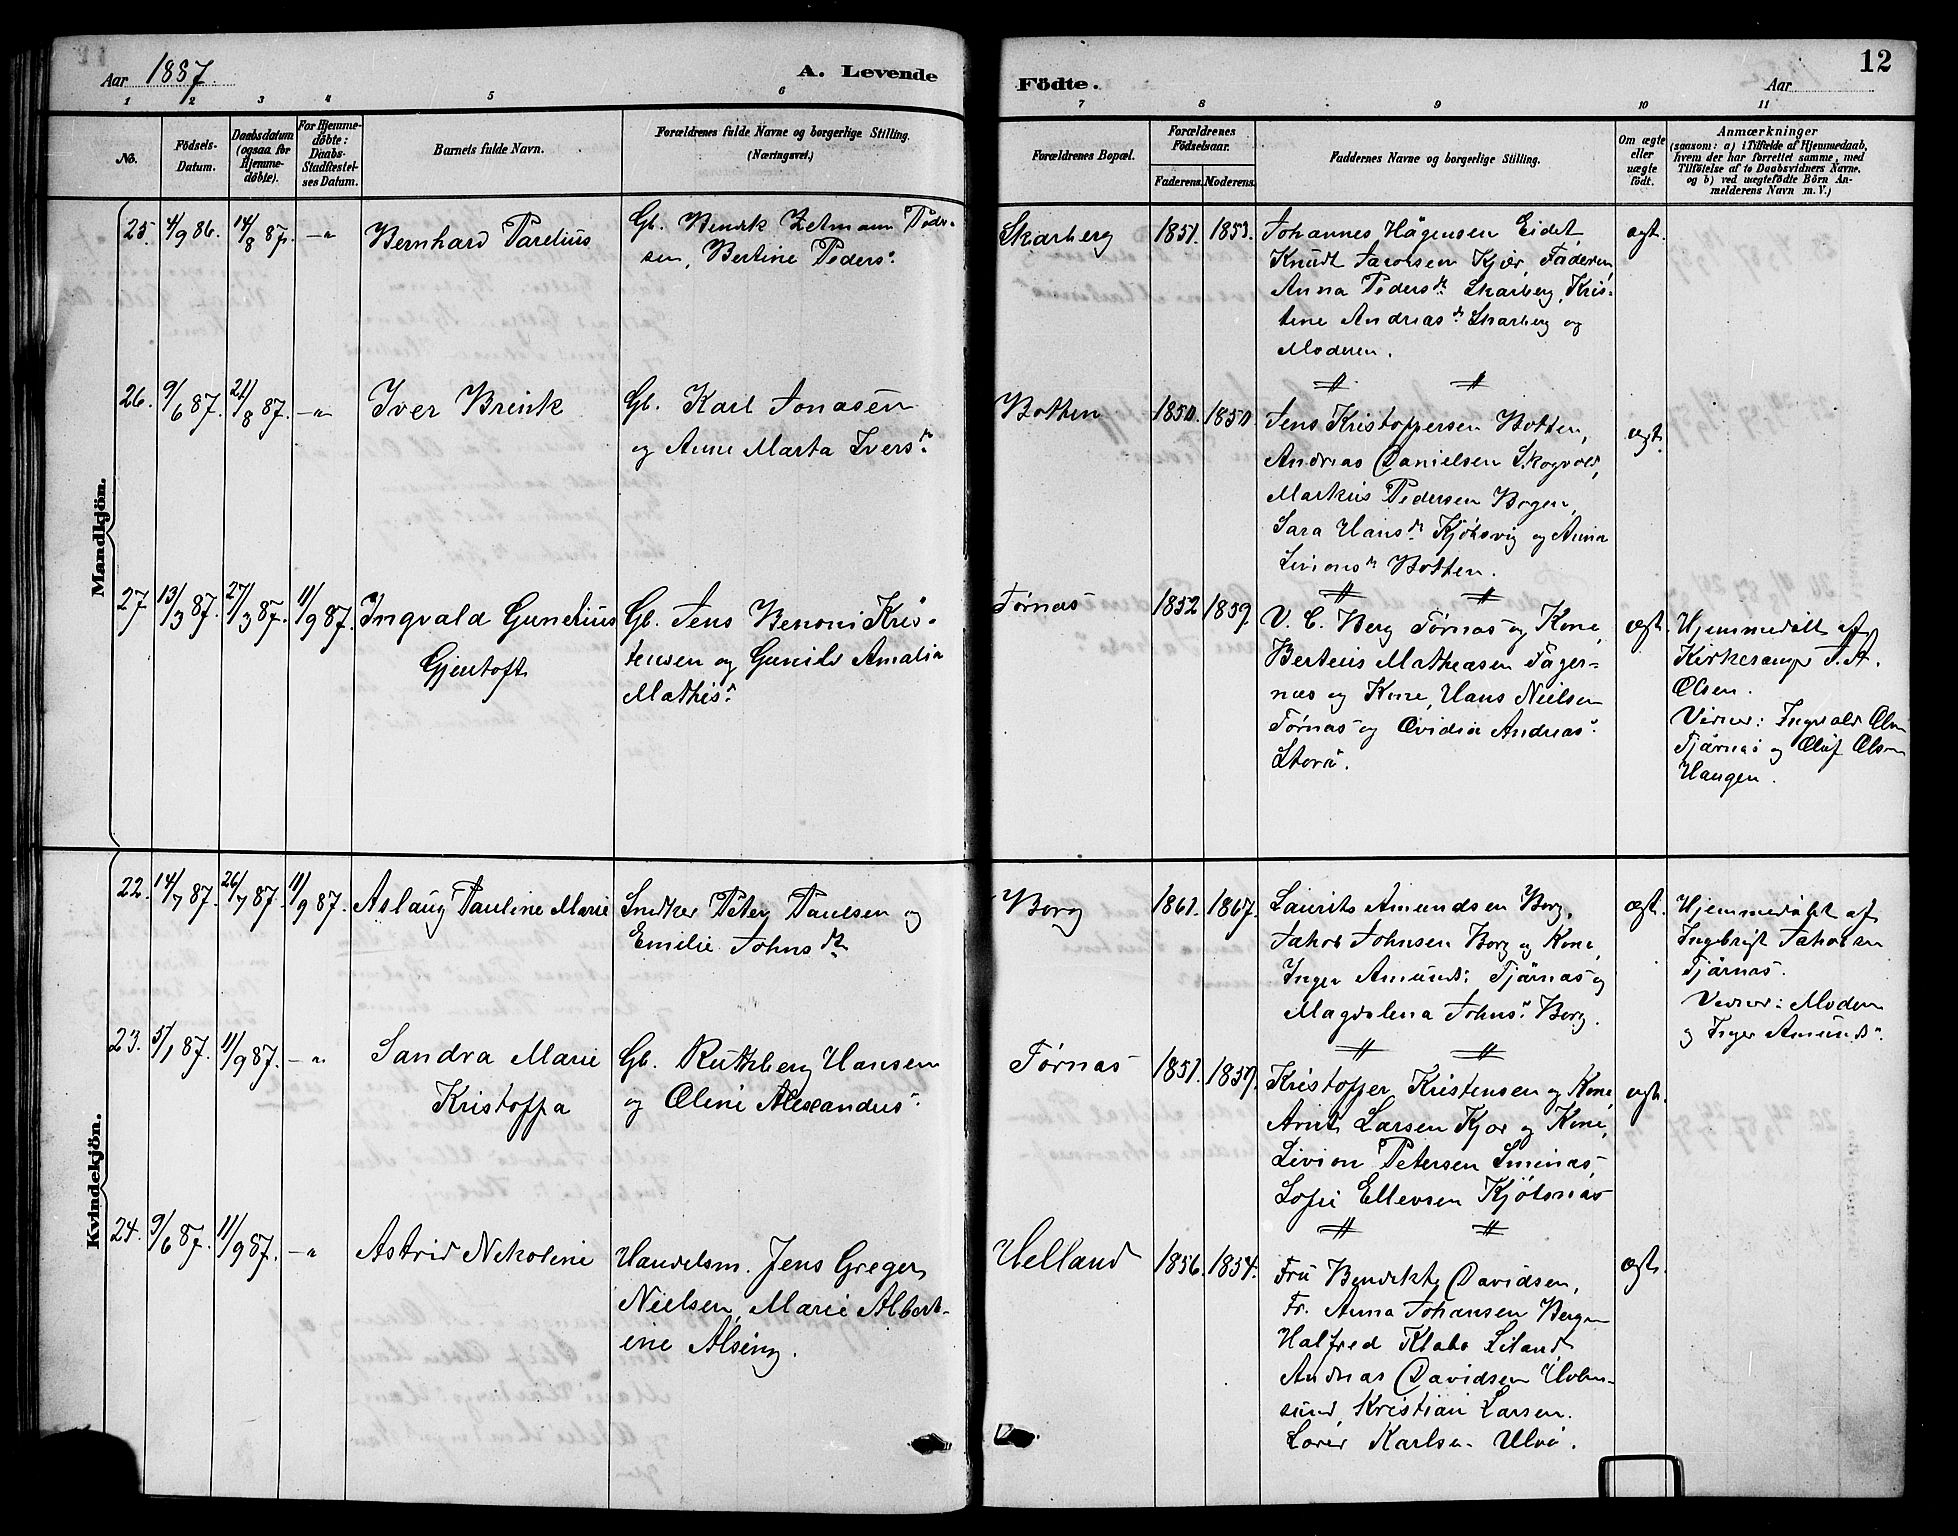 Aar 1887.
A. Levende
Födte.
Aar
12
1 2 3 4 5 6 7 8 9 10 11
No.
Födsels-
Datum.
Daabsdatum
(ogsaa for
Hjemme-
döbte).
For Hjemme-
döbte:
Daabs-
Stadfæstel-
ses Datum.
Barnets fulde Navn.
Forældrenes fulde Navne og borgerlige Stilling.
(Næringsvei.)
Forældrenes Bopæl.
Forældrenes
Födselsaar.
Faderens. Moderens.
Faddernes Navne og borgerlige Stilling.
Om ægte
eller
uægte
födt.
Anmærkninger
(saasom: a) i Tilfælde af Hjemmedaab,
hvem der har forrettet samme, med
Tilföielse af to Daabsvidners Navne,
og b) ved uægtefödte Börn An-
melderens Navn m. V.)
Mandkjön.
25. 4/9 86. 14/8 87. -"- Bernhard Parelius
Gb. Bendik Zetmann Peder-
sen, Bertine Peders.
Skarberg 1851. 1853.
Johannes Hågensen Eidet
Knudt Jacobsen Kjær, Faderen,
Anna Pedersdr. Skarberg, Kris-
tine Andreasdr. Skarberg og
Moderen.
ægt.
26. 9/6 87. 21/8 87. -"- Iver Brink
Gb. Karl Jonasen
og Anne Marta Iversdr.
Botten 1850. 1850.
Jens Kristoffersen Botten,
Andreas Danielsen Skogvold,
Markus Pedersen Bogen,
Sara Hansdr. Kjøbsvig og Anna
Sivionsdr. Botten.
ægt.
27. 13/3 87. 27/3 87. 11/9 87. Ingvald Gunelius
Gjentoft
Gb. Jens Benoni Kris-
tensen og Gunild Amalia
Mathis.
Tørnæs 1852 1859.
V. C. Berg Tørnæs og Kone,
Berteus Matheasen Fager-
næs og Kone, Hans Nielsen
Tørnæs og Ovidia Andreas.
Storå.
ægt.
Hjemmedøbt af
Kirkesanger J. A.
Olsen.
Vidner: Ingvald Olsen
Tjårnæs og Oluf Olsen
Haugen.
Kvindekjön.
22. 14/7 87. 26/7 87. 11/9 87. Aslaug Pauline Marie
Snedker Peter Paulsen og
Emilie Johnsdr.
Borg 1861. 1867.
Laurits Amundsen Borg,
Jakob Johnsen Borg og Kone,
Inger Amunds. Tjårnæs og
Magdalena Johns. Borg.
ægt.
Hjemmedøbt af
Ingebrigt Jakobsen
Tjårnæs.
Vidner: Moderen
og Inger Amunds.
23. 5/1 87. 11/9 87. -"- Sandra Marie
Kristoffa
Gb. Ruthberg Hansen
og Oline Alexanders.
Tørnæs 1851. 1857.
Kristoffer Kristensen og Kone,
Arnt Larsen Kjær og Kone,
Sivion Petersen Sminæs,
Sofie Ellevsen Kjøbsnæs
ægt.
24. 9/6 87. 11/9 87. -"- Astrid Nekoline
Handelsm. Jens Greger
Nielsen, Marie Albert-
ine Alsing.
Helland 1856. 1854.
Fru Bendikte Davidsen,
Fr. Anna Johansen Bergen
Halfred Klabo Liland,
Andreas Davidsen Holm-
sund, Kristian Larsen.
Karlsen Ulvö.
ægt.